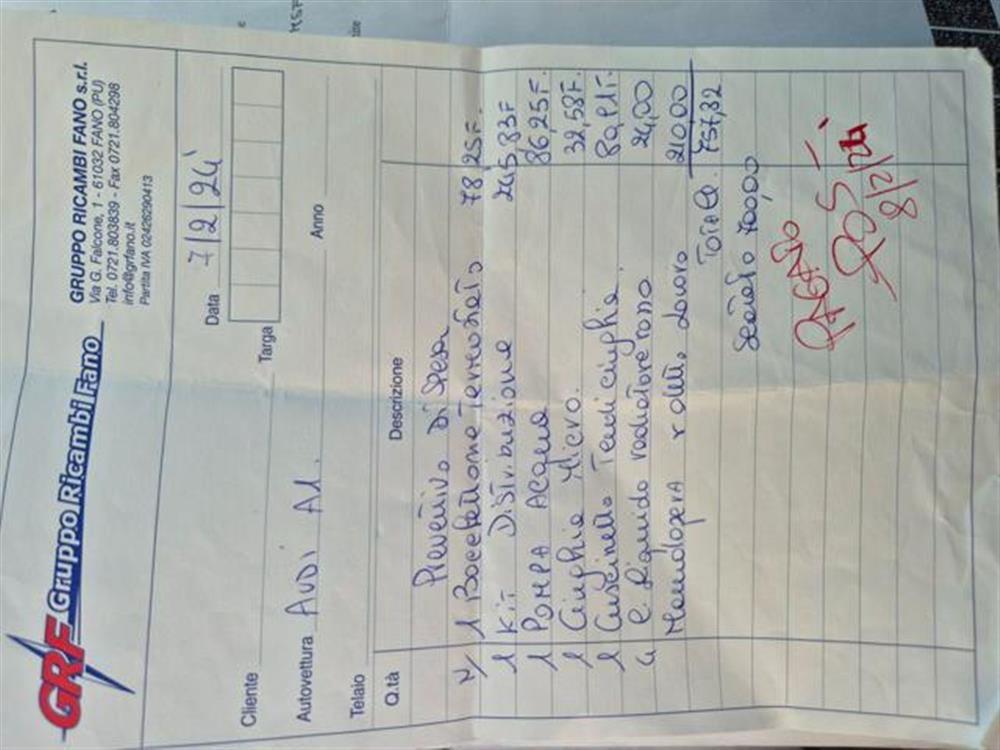 GRF Gruppo Ricambi Fano
GRUPPO RICAMBI FANO s.r.l.
Via G. Falcone, 1 - 61032 FANO (PU)
Tel. 0721.803839 - Fax 0721.804298
info@grfano.it
Partita IVA 02426290413
Cliente
Data 7/2/24
Autovettura AUDI A1.
Targa
Telaio
Anno
Q.tà Descrizione
Preventivo Di Spesa
1 Termostato 78,25 F.
1 Kit Distribuzione 245,83 F
1 POMPA Acqua 86,25 F.
1 Cinghia Micro. 32,58 F.
1 Cuscinetto Tendicinghia. F.
Liquido radiatore rosso 24,00
Manodopera lavoro 210,00
Totale. 757,32
700,00
PAGATO
POS
8/2/24